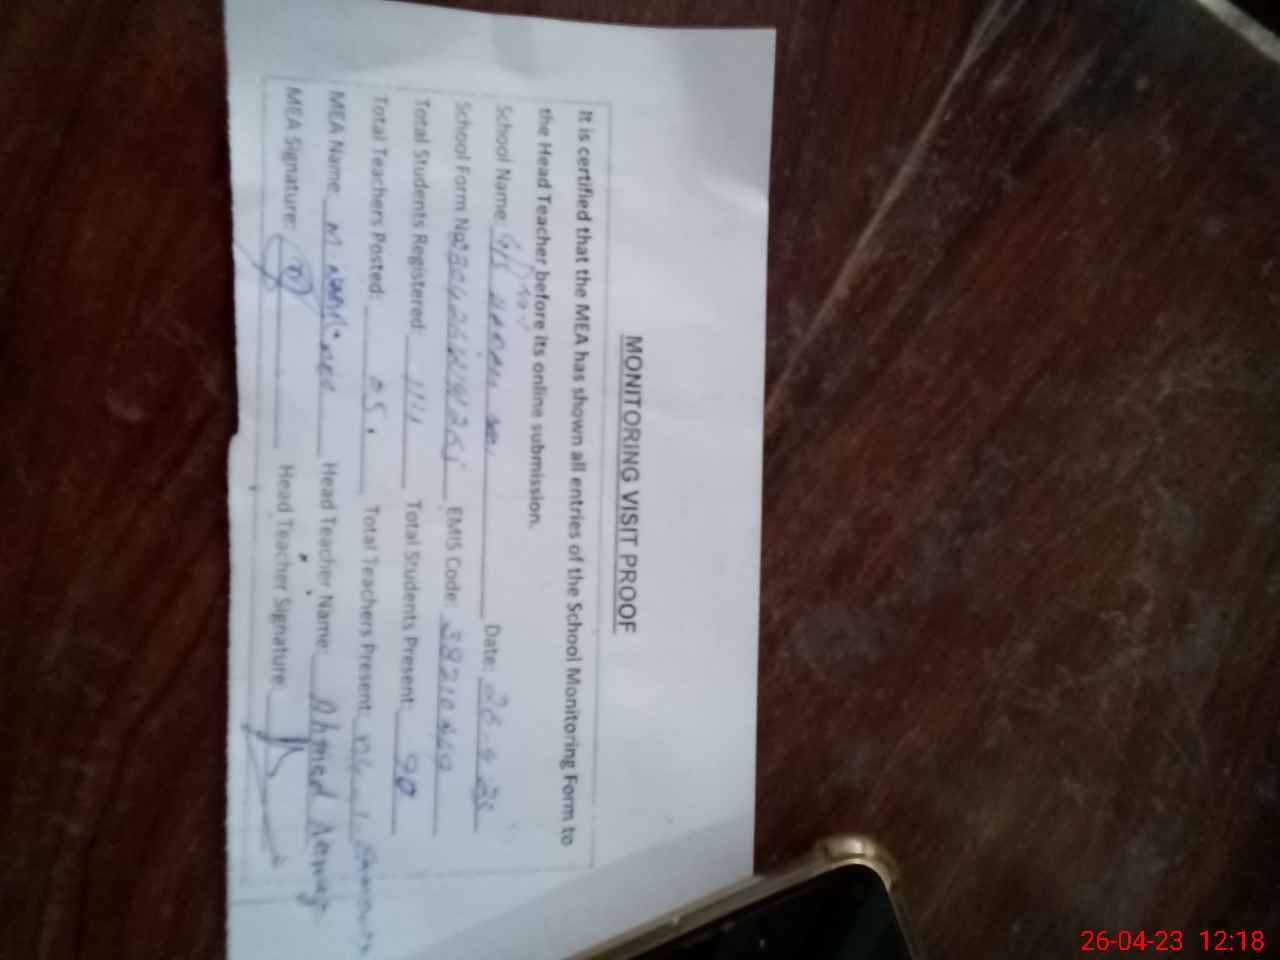 MONITORING VISIT PROOF
It is certified that the MEA has shown all entries of the School Monitoring Form to
the Head Teacher before its online submission.
School Name: Date: 26-4-23
School Form No: EMIS Code:
Total Students Registered: 111 Total Students Present: 90
Total Teachers Posted: 05. Total Teachers Present:
MEA Name Head Teacher Name: Ahmed
MEA Signature: Head Teacher Signature:
26-04-23 12:18